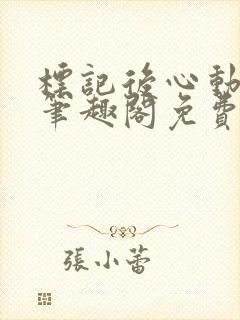 標記後心動
筆趣閣免費
張小蕾